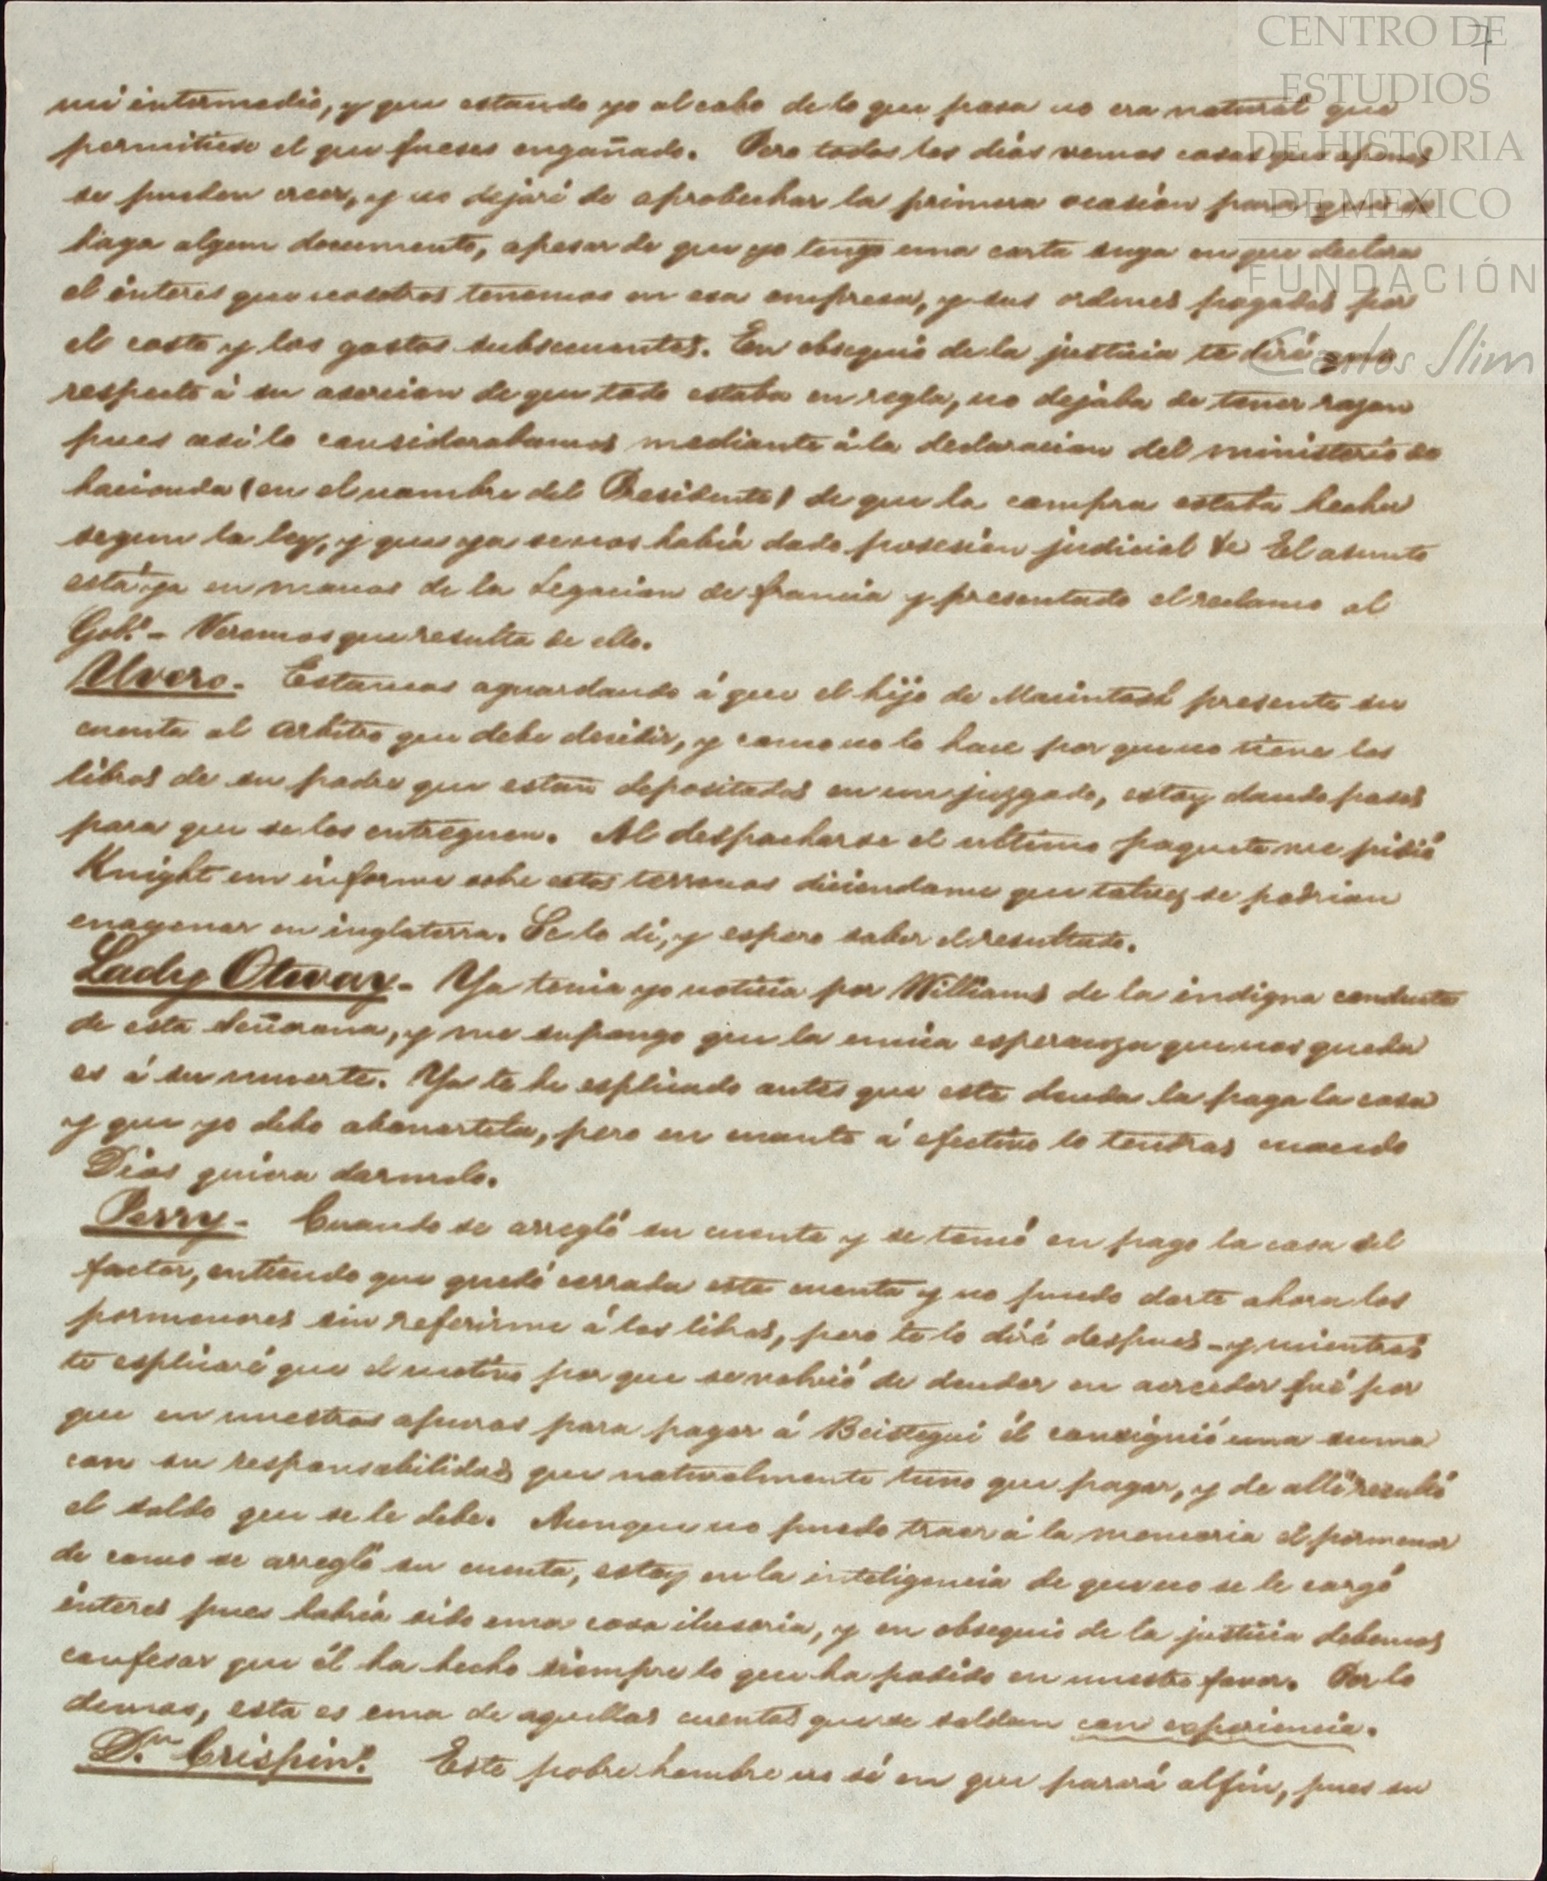 CENTRO DE
ESTUDIOS
DE HISTORIA
DE MEXICO
FUNDACIÓN
Carlos Slim
7
mi intermedio, y que estando yo al cabo de lo que pasa no era natural que
permitiese el que fueses engañado. Pero todos los dias vemos cosas que apenas
se pueden creer, y no dejaré de aprobechar la primera ocasión para que se
haga algun documento, apesar de que yo tengo una carta suya en que declara
el interes que nosotros tenemos en esa empresa, y sus ordenes pagadas por
el costo y los gastos subsecuentes. En obsequio de la justicia te diré que
respecto á su asercion de que todo estaba en regla, no dejába de tener razon
pues asi lo considerabamos mediante á la declaracion del ministerio de
hacienda (en el nombre del Presidente) de que la compra estaba hecha
segun la ley, y que ya se nos habia dado posesión judicial &c El asunto
está ya en manos de la Legacion de francia y presentado el reclamo al
Gob.º - Veremos que resulta de ello.
Uvero. Estamos aguardando á que el hijo de Macintosh presente su
cuenta al arbitro que debe decidir, y como no lo hace por que no tiene los
libros de su padre que estan depositados en un juzgado, estoy dando pasos
para que se los entreguen. Al despacharse el ultimo paquete me pidió
Knight un informe sobre estos terrenos diciendome que talvez se podrian
enagenar en inglaterra. Se lo di, y espero saber el resultado.
Lady Otway - Ya tenia yo noticia por Williams de la indigna conducta
de esta Señorona, y me supongo que la unica esperanza que nos queda
es á su muerte. Ya te he esplicado antes que esta deuda la paga la casa
y que yo debo abonartela, pero en cuanto á efectivo lo tendras cuando
Dios quiera darmelo.
Perry - Cuando se arregló su cuenta y se tomó en pago la casa del
factor, entiendo que quedó cerrada esta cuenta y no puedo darte ahora los
pormenores sin referirme á los libros, pero te lo diré despues - y mientras
te esplicaré que el motivo por que se volvió de deudor en acreedor fué por
que en nuestros apuros para pagar á Beistegui él consiguió una suma
con su responsabilidad que naturalmente tuvo que pagar, y de alli resultó
el saldo que se le debe. Aunque no puedo traer á la memoria el pormenor
de como se arregló su cuenta, estoy en la inteligencia de que no se le cargó
interes pues habria sido una cosa ilusoria, y en obsequio de la justicia debemos
confesar que él ha hecho siempre lo que ha podido en nuestro favor. Por lo
demas, esta es una de aquellas cuentas que se saldan con experiencia.
D.n Crispin.º Este pobre hombre no sé en que parará al fin, pues su